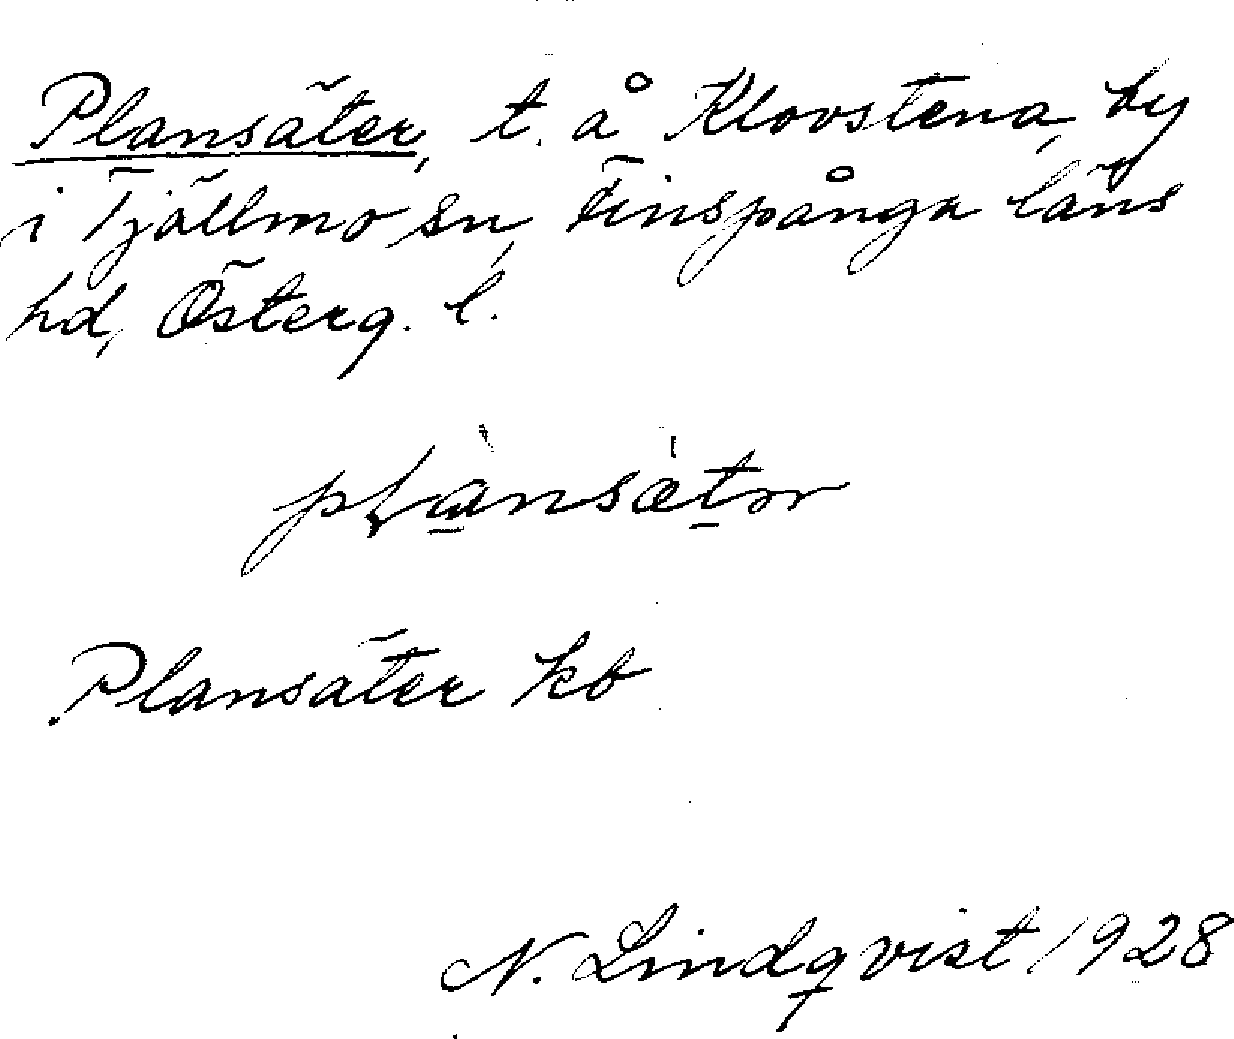 Plansäter, t. å Klovstena, by
i Tjällmo sn, Finspånga läns
hd, Österg. l.
Plansäter kb
N. Lindqvist 1928